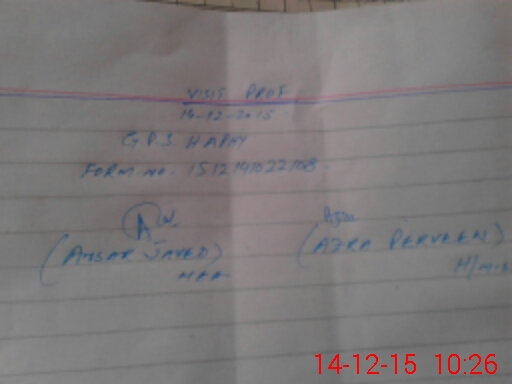 VISIT PROF
14-12-2015
G.P.S HAPPY
FORM NO. 1512141022108
A
(AMSAR JAVED) (AZRA PERVEEN)
MEA H/mis
14-12-15 10:26